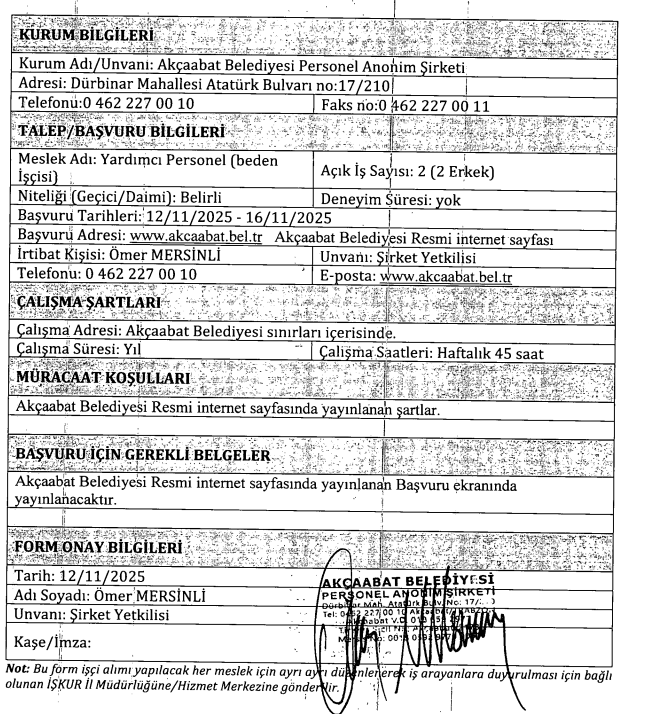 KURUM BİLGİLERİ
Kurum Adı/Unvanı: Akçaabat Belediyesi Personel Anonim Şirketi
Adresi: Dürbinar Mahallesi Atatürk Bulvarı no:17/210
Telefonu:0 462 227 00 10 Faks no:0 462 227 00 11
TALEP/BAŞVURU BİLGİLERİ
Meslek Adı: Yardımcı Personel (beden
İşçisi)
Açık İş Sayısı: 2 (2 Erkek)
Niteliği (Geçici/Daimi): Belirli Deneyim Süresi: yok
Başvuru Tarihleri: 12/11/2025 - 16/11/2025
Başvuru Adresi: www.akcaabat.bel.tr Akçaabat Belediyesi Resmi internet sayfası
İrtibat Kişisi: Ömer MERSİNLİ Unvanı: Şirket Yetkilisi
Telefonu: 0 462 227 00 10 E-posta: www.akcaabat.bel.tr
ÇALIŞMA ŞARTLARI
Çalışma Adresi: Akçaabat Belediyesi sınırları içerisinde.
Çalışma Süresi: Yıl Çalışma Saatleri: Haftalık 45 saat
MÜRACAAT KOŞULLARI
Akçaabat Belediyesi Resmi internet sayfasında yayınlanan şartlar.
BAŞVURU İÇİN GEREKLİ BELGELER
Akçaabat Belediyesi Resmi internet sayfasında yayınlanan Başvuru ekranında
yayınlanacaktır.
FORM ONAY BİLGİLERİ
Tarih: 12/11/2025
Adı Soyadı: Ömer MERSİNLİ
Unvanı: Şirket Yetkilisi
Kaşe/İmza:
AKÇAABAT BELEDİYESİ
PERSONEL ANONİM ŞİRKETİ
Dürbinar Mah. Atatürk Bulv. No: 17/
Tel: 0462 227 00 10 Akçaabat/
Akçaabat V.D.
Not: Bu form işçi alımı yapılacak her meslek için ayrı ayrı düzenlenerek iş arayanlara duyurulması için bağlı
olunan İŞKUR İl Müdürlüğüne/Hizmet Merkezine gönderilir.